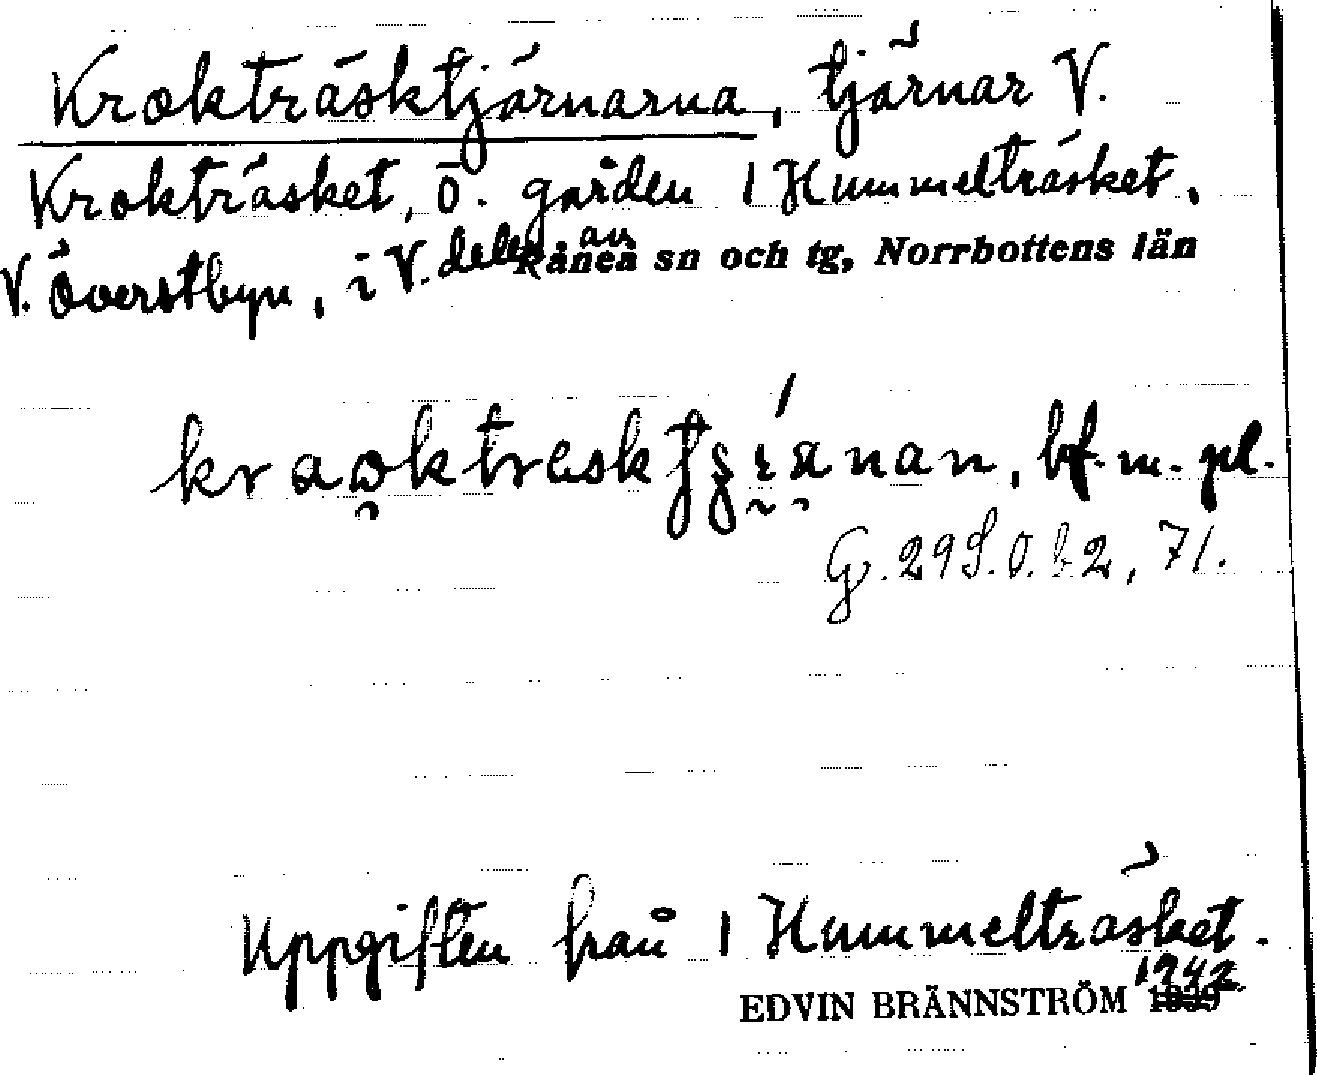 Krokträsktjärnarna, tjärnar V.
Krokträsket, ö. gården 1 Hummelträsket,
V. Överstbyn, i V. delen av Råneå sn och tg, Norrbottens län
bf. m. pl.
G. 29 S. O. b2, 71.
Uppgiften från 1 Hummelträsket.
EDVIN BRÄNNSTRÖM 1942